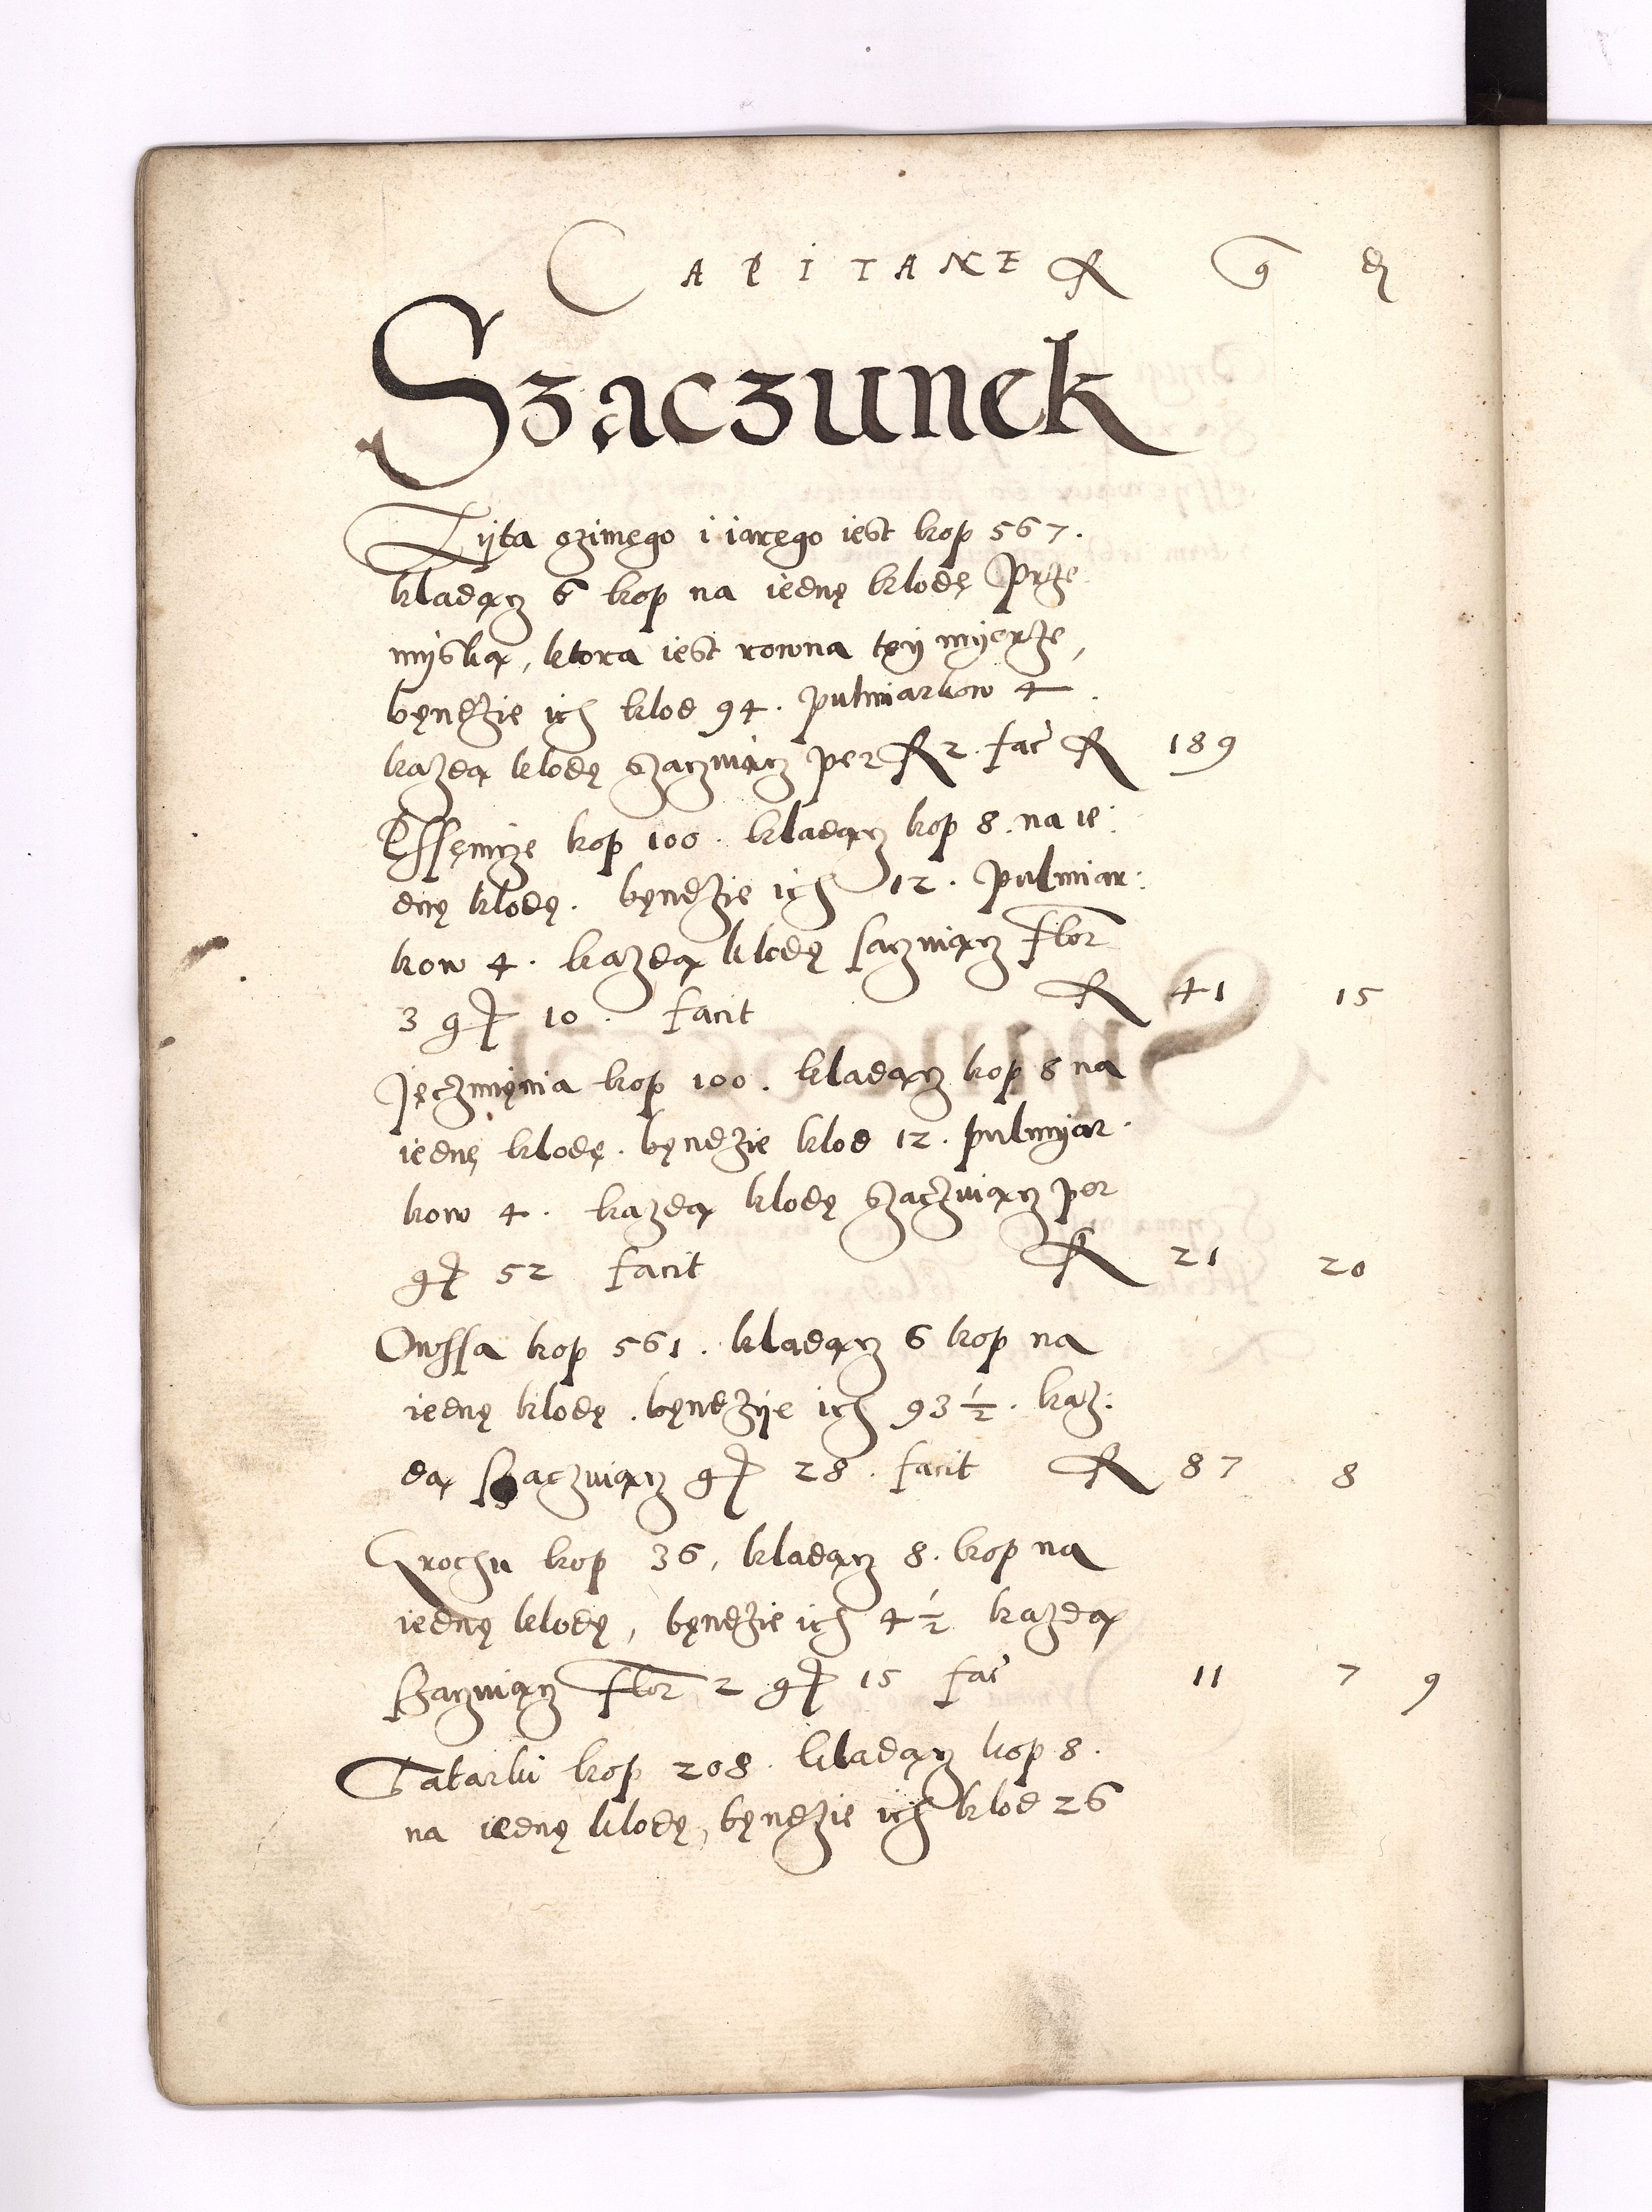 CAPITANE R g d
Szaczunek
Zyta ozimęgo i iaręgo iest kop 567.
kladącz 6 kop na iednę klodę Prze
myską, ktora iest rowna tęy myerze,
będzie ich klod 94. pulmiarkow 4.
kazdą klodę szaczuiącz per R 2. fac R 189
Pssęnicze kop 100. kladącz kop 8. na ie:
dnę klodę. bęndzie ich 12. pulmiar:
kow 4. kazdą klodę saczuiącz flor
3 gr 10. facit R 41 15
Jęczmięnia kop 100. kladącz kop 8 na
iednę klodę. bęndzie klod 12. pulmyar.
kow 4. kazdą klodę szaczuiącz per
gr 52 facit R 21 20
Owssa kop 561. kladącz 6 kop na
iednę klodę. bęndzye ich 93 1/2. kaz:
dą szaczuiącz gr 28. facit R 87 8
Grochu kop 36, kladącz 8. kop na
iednę klodę, bęndzie ich 4 1/2 kazdą
szaczuiącz flor 2 gr 15 fac 11 7 9
Tatarki kop 208. kladącz kop 8.
na iednę klodę, bęndzie ich klod 26